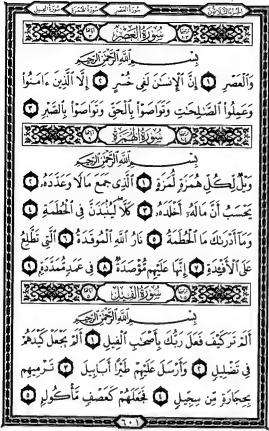 سُورَةُ العَصْرِ
بِسْمِ اللَّهِ الرَّحْمَٰنِ الرَّحِيمِ
وَالْعَصْرِ ۝١ إِنَّ الْإِنسَٰنَ لَفِي خُسْرٍ ۝٢ إِلَّا الَّذِينَ ءَامَنُوا
وَعَمِلُوا الصَّٰلِحَٰتِ وَتَوَاصَوْا بِالْحَقِّ وَتَوَاصَوْا بِالصَّبْرِ ۝٣
سُورَةُ الهُمَزَةِ
بِسْمِ اللَّهِ الرَّحْمَٰنِ الرَّحِيمِ
وَيْلٌ لِّكُلِّ هُمَزَةٍ لُّمَزَةٍ ۝١ الَّذِي جَمَعَ مَالًا وَعَدَّدَهُ ۝٢
يَحْسَبُ أَنَّ مَالَهُ أَخْلَدَهُ ۝٣ كَلَّا لَيُنبَذَنَّ فِي الْحُطَمَةِ ۝٤
وَمَا أَدْرَىٰكَ مَا الْحُطَمَةُ ۝٥ نَارُ اللَّهِ الْمُوقَدَةُ ۝٦ الَّتِي تَطَّلِعُ
عَلَى الْأَفْـِٔدَةِ ۝٧ إِنَّهَا عَلَيْهِم مُّؤْصَدَةٌ ۝٨ فِي عَمَدٍ مُّمَدَّدَةٍ ۝٩
سُورَةُ الفِيلِ
بِسْمِ اللَّهِ الرَّحْمَٰنِ الرَّحِيمِ
أَلَمْ تَرَ كَيْفَ فَعَلَ رَبُّكَ بِأَصْحَٰبِ الْفِيلِ ۝١ أَلَمْ يَجْعَلْ كَيْدَهُمْ
فِي تَضْلِيلٍ ۝٢ وَأَرْسَلَ عَلَيْهِمْ طَيْرًا أَبَابِيلَ ۝٣ تَرْمِيهِم
بِحِجَارَةٍ مِّن سِجِّيلٍ ۝٤ فَجَعَلَهُمْ كَعَصْفٍ مَّأْكُولٍ ۝٥
٦٠١